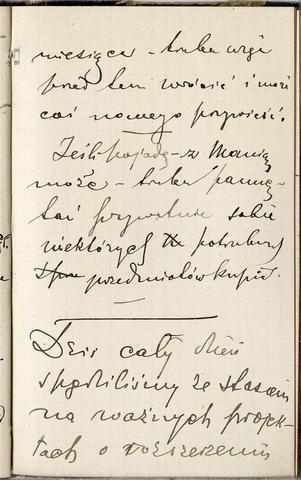 miesiąca – trzeba więc
przed tem wrócić i może
coś nowego przywieść.
Jeśli pojadę – z Manią
może – trzeba pamię-
tać prywatnie sobie
niektórych potrzebnych
przedmiotów kupić.
Dziś cały dzień
spędziliśmy ze Stasiem
na ważnych projek-
tach o rozszerzeniu